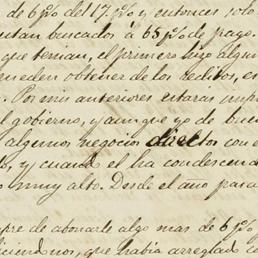 de 6 p% del 17 p%, y entonces solo
buscados á 65 p% de pago.
que tenian, el primero hizo algun
obtener de los reditos, es
Por mis anteriores estaras
gobierno, y aunque yo de bue
algunos negocios directos con
y cuando el ha condescend
muy alto. Desde el año pasa
de abonarle algo mas de 6 p%
que habia arreglado co